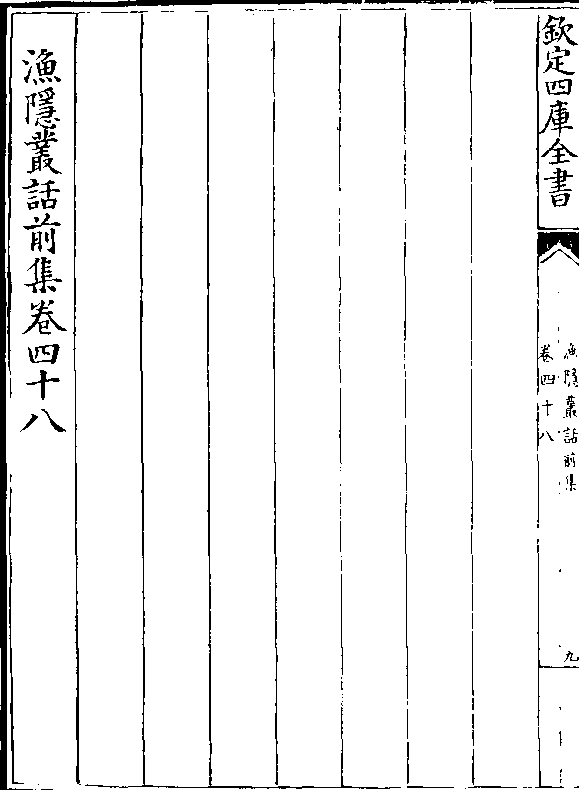 欽定四庫全書
漁隱叢話前集
卷四十八
九
漁隱叢話前集卷四十八